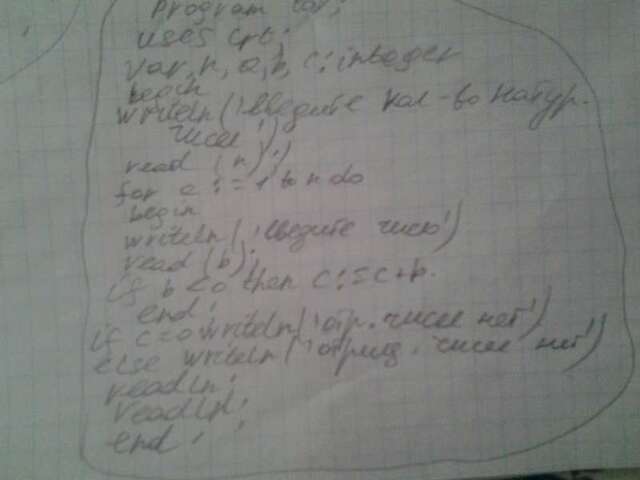 Program
uses crt;
var, n, a, b, c: integer
begin
writeln('введите кол-во натур.
чисел');
read (n);
for a:=1 to n do
begin
writeln('введите число')
read (b);
if b<0 then c:=c+b.
end;
if c=0 writeln('отр. чисел нет')
else writeln('отриц. чисел нет')
readln;
readln;
end;